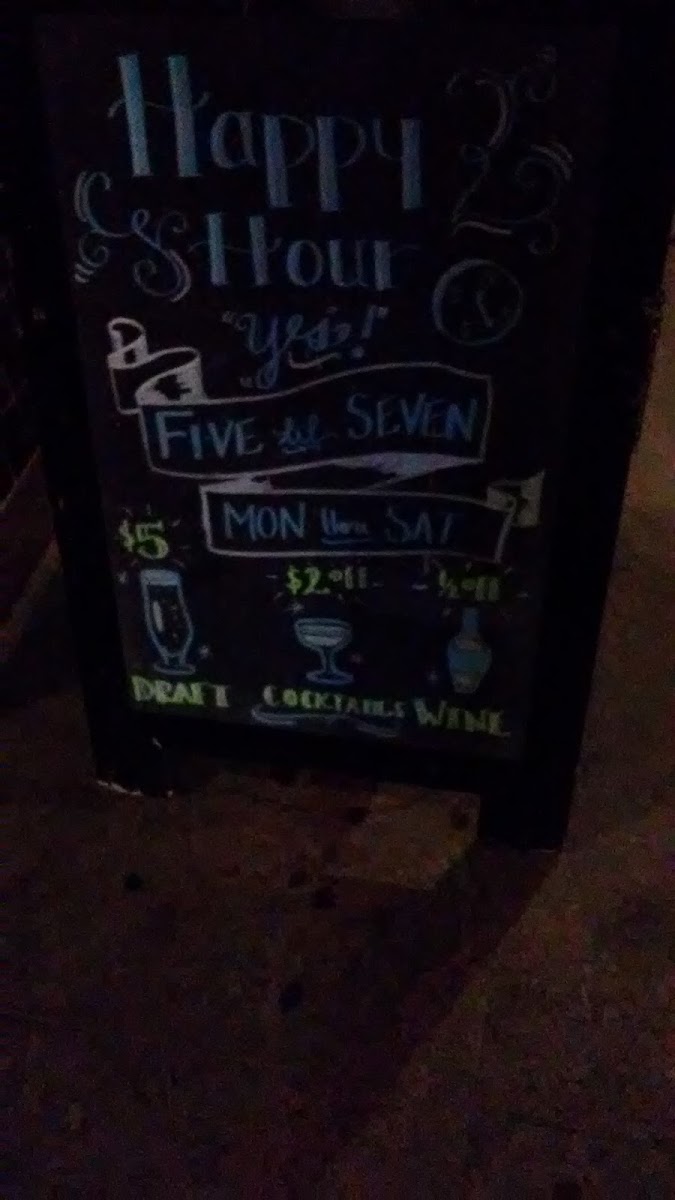 Happy
Hour
"yes!"
FIVE til SEVEN
MON thru SAT
$5
$2 off
½ off
DRAFT
COCKTAILS
WINE